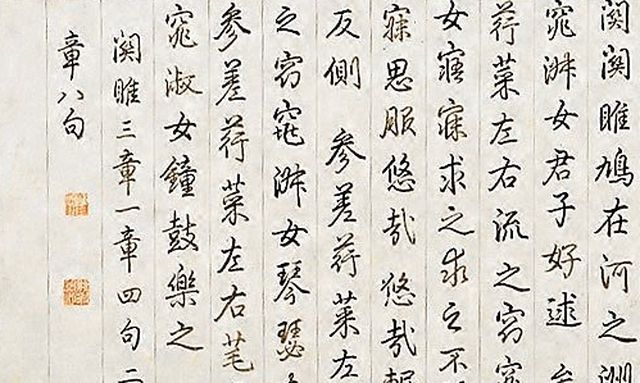 關關雎鳩在河之洲
窕淑女君子好逑
荇菜左右流之窈窕
女寤寐求之求之不
寐思服悠哉悠哉輾
反側 參差荇菜左
之窈窕淑女琴瑟
參差荇菜左右芼
窕淑女鐘鼓樂之
關雎三章一章四句二
章八句